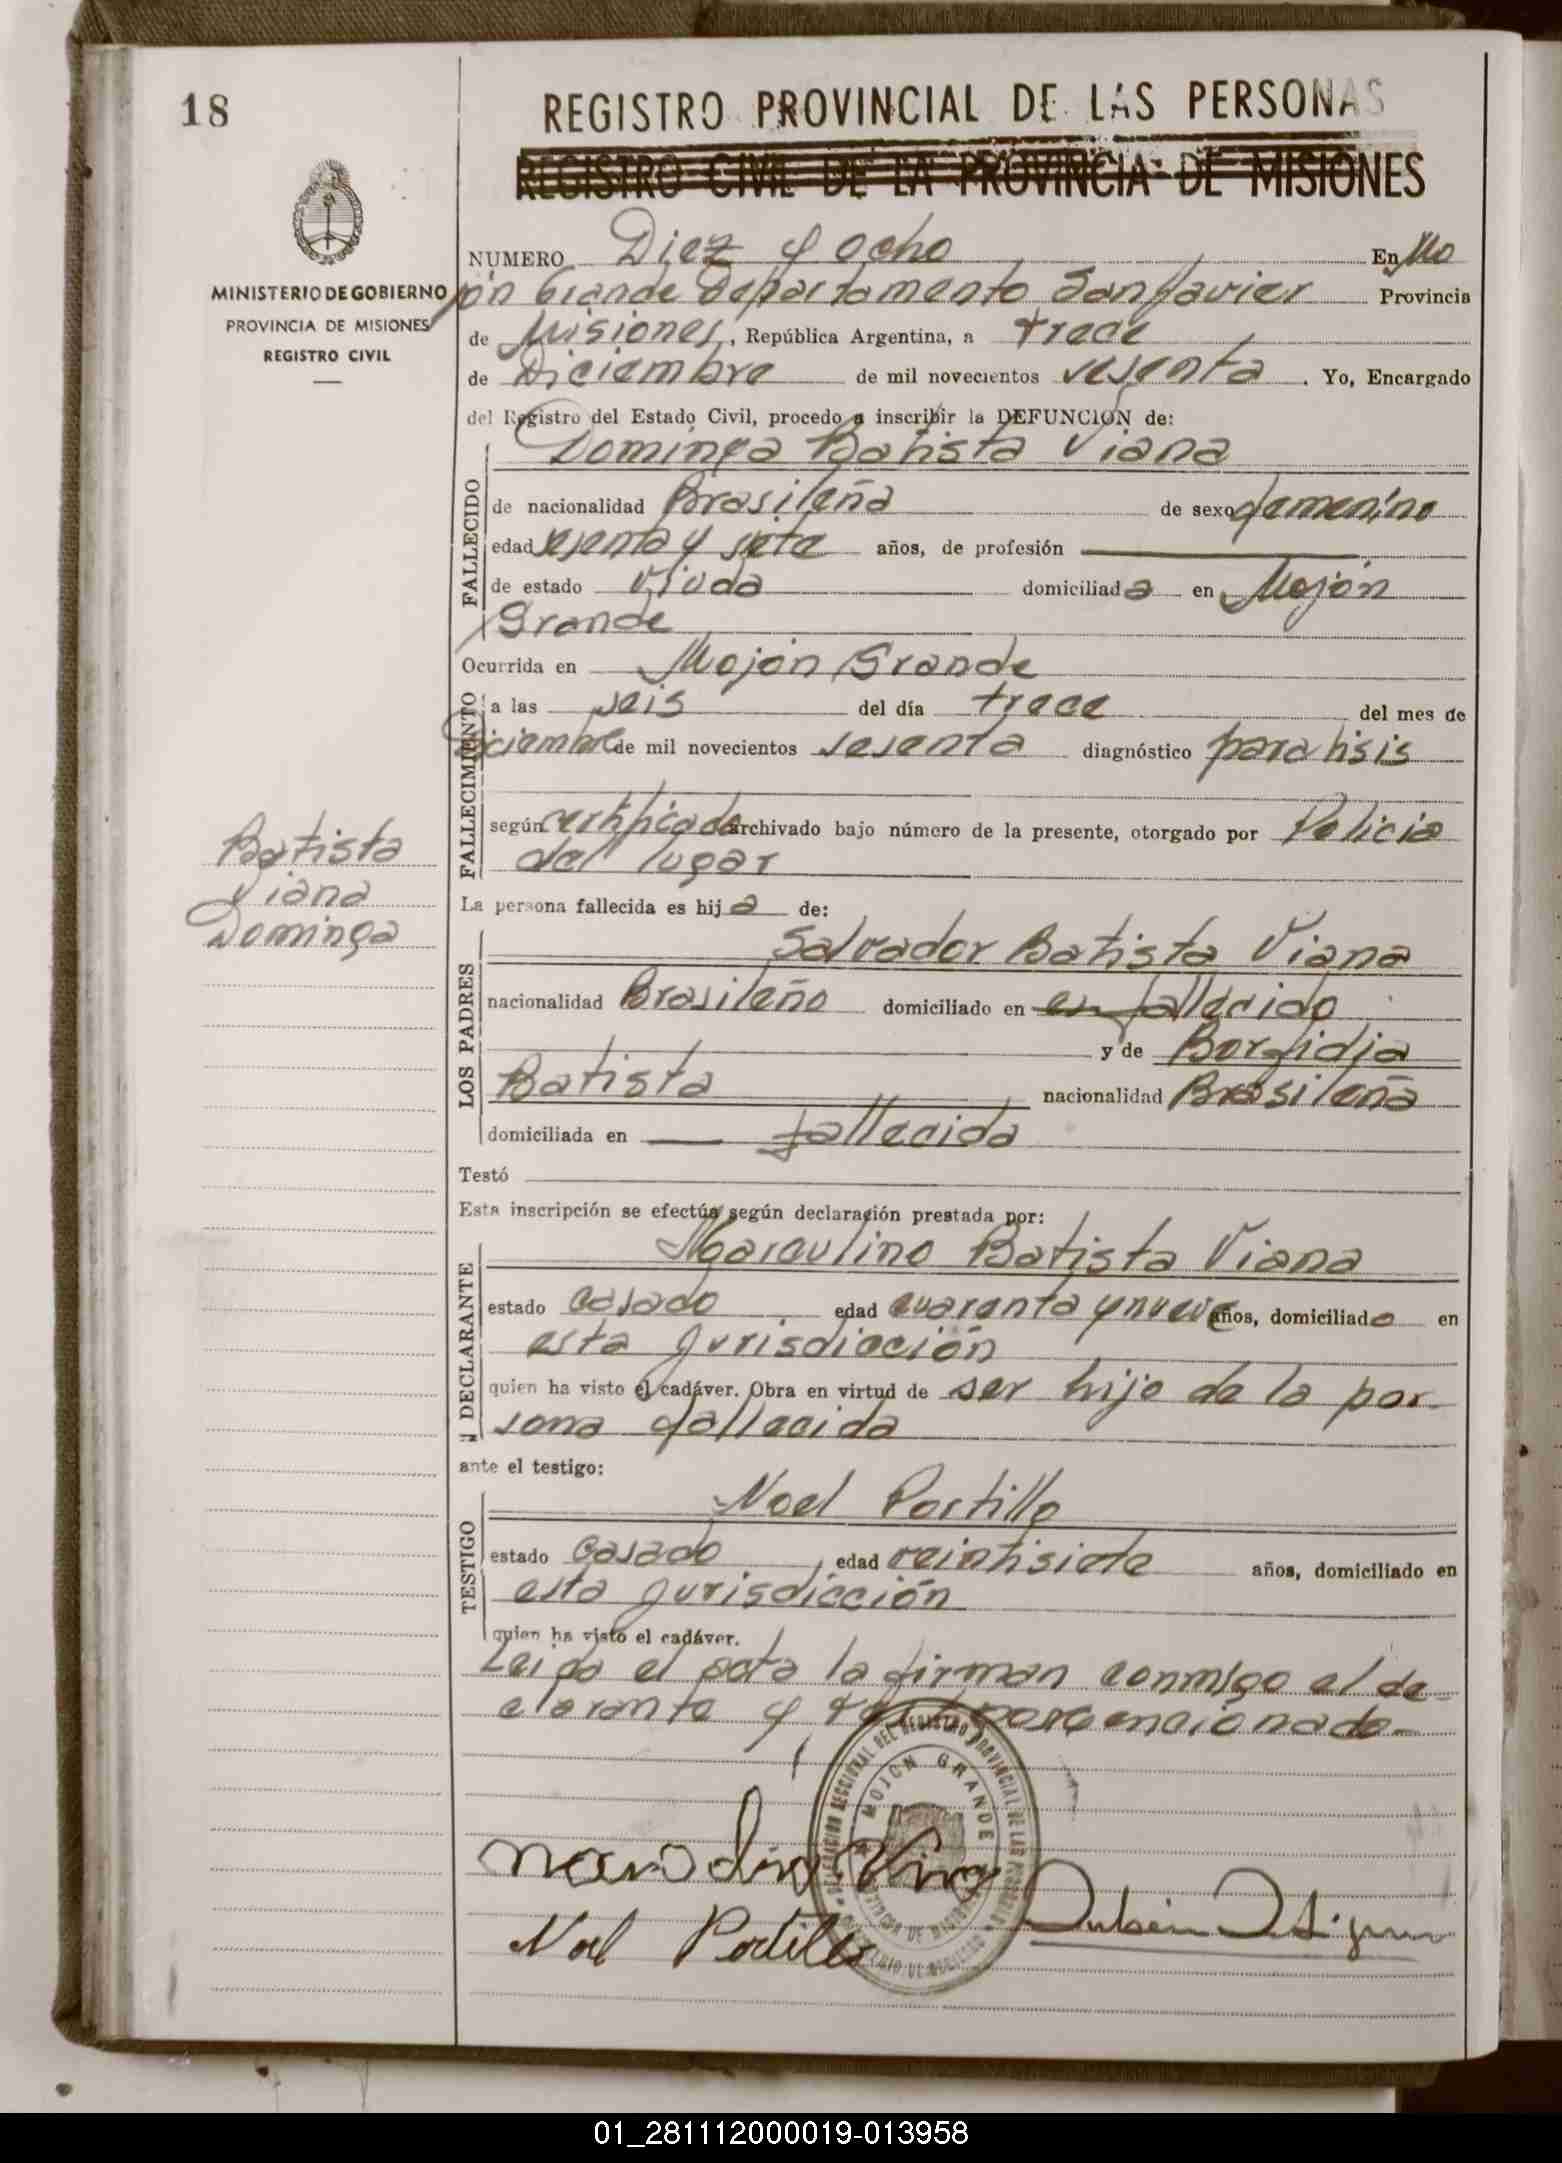 18
REGISTRO PROVINCIAL DE LAS PERSONAS
REGISTRO CIVIL DE LA PROVINCIA DE MISIONES
MINISTERIO DE GOBIERNO
PROVINCIA DE MISIONES
REGISTRO CIVIL
NUMERO Diez y ocho En Mo
jón Grande Departamento San Javier Provincia
de Misiones, República Argentina, a trece
de Diciembre de mil novecientos sesenta. Yo, Encargado
del Registro del Estado Civil, procedo a inscribir la DEFUNCION de:
Dominga Batista Viana
FALLECIDO
de nacionalidad Brasileña de sexo femenino
edad sesenta y siete años, de profesión
de estado viuda domiciliada en Mojón
Grande
Ocurrida en Mojón Grande
FALLECIMIENTO
a las seis del día trece del mes de
Diciembre de mil novecientos sesenta diagnóstico paralisis
según certificado archivado bajo número de la presente, otorgado por Policia
del lugar
Batista
Viana
Dominga
La persona fallecida es hija de:
LOS PADRES
Salvador Batista Viana
nacionalidad Brasileño domiciliado en en fallecido
y de
Batista nacionalidad Brasileña
domiciliada en fallecida
Testó
Esta inscripción se efectúa según declaración prestada por:
DECLARANTE
Marculino Batista Viana
estado casado edad cuarenta y nueve años, domiciliado en
esta jurisdicción
quien ha visto el cadáver. Obra en virtud de ser hijo de la per-
sona fallecida
ante el testigo:
TESTIGO
Noel Portillo
estado casado edad veintisiete años, domiciliado en
esta jurisdicción
quien ha visto el cadáver.
Leida el acta la firman conmigo el de-
clarante y
DELEGACION SECCIONAL DEL REGISTRO PROVINCIAL DE LAS PERSONAS
MOJON GRANDE
PROVINCIA DE MISIONES
MINISTERIO DE GOBIERNO
Noel Portillo
01_281112000019-013958